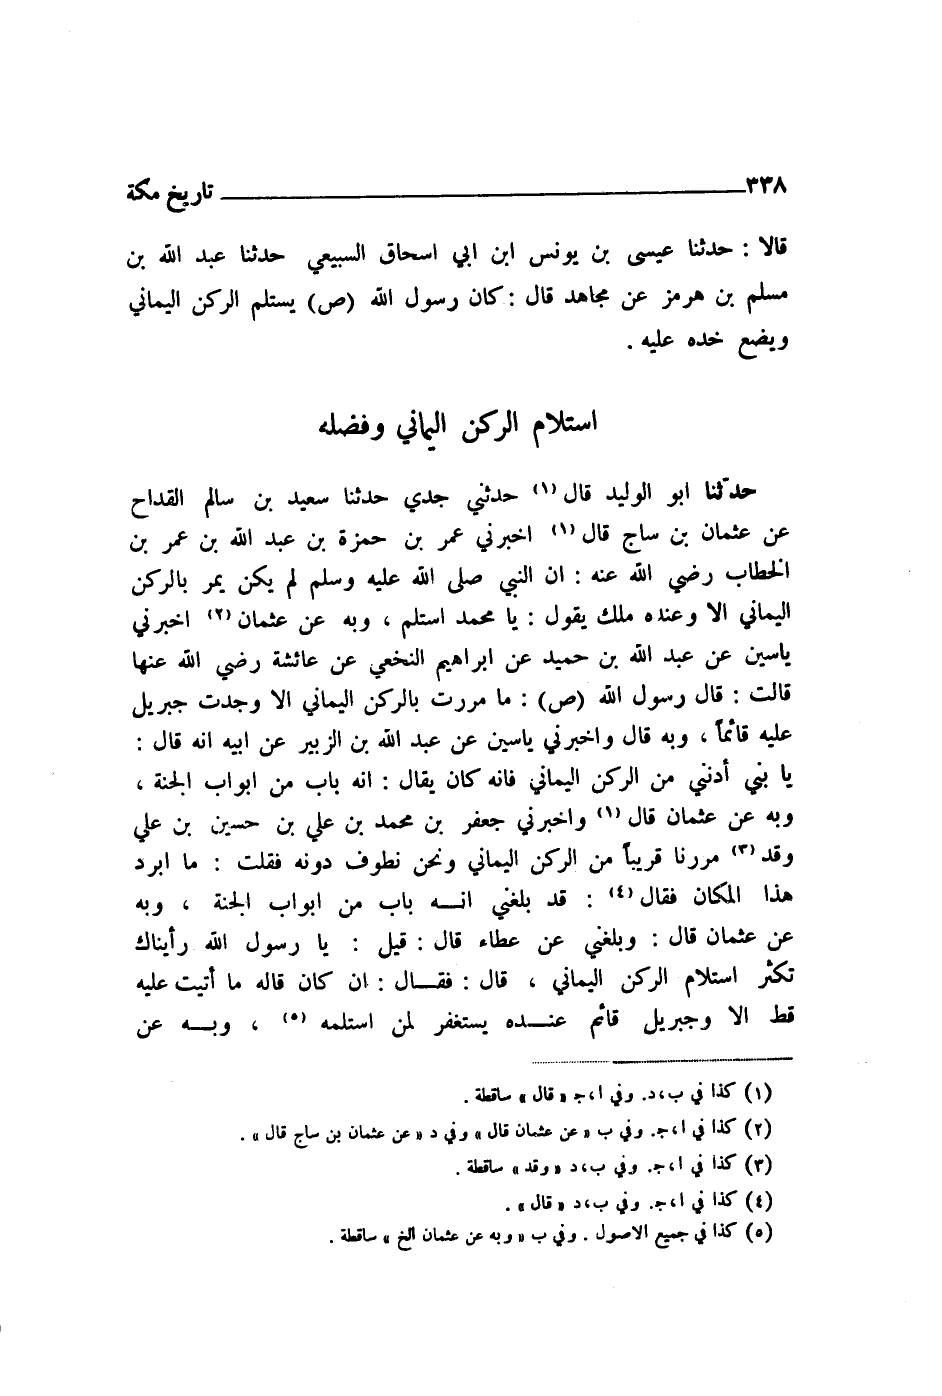 ٣٣٨ تاريخ مكة
قالا : حدثنا عيسى بن يونس ابن ابي اسحاق السبيعي حدثنا عبد الله بن
مسلم بن هرمز عن مجاهد قال : كان رسول الله (ص) يستلم الركن اليماني
ويضع خده عليه .
استلام الركن اليماني وفضله
حدّثنا ابو الوليد قال (١) حدثني جدي حدثنا سعيد بن سالم القداح
عن عثمان بن ساج قال (١) اخبرني عمر بن حمزة بن عبد الله بن عمر بن
الخطاب رضي الله عنه : ان النبي صلى الله عليه وسلم لم يكن يمر بالركن
اليماني الا وعنده ملك يقول : يا محمد استلم ، وبه عن عثمان (٢) اخبرني
ياسين عن عبد الله بن حميد عن ابراهيم النخعي عن عائشة رضي الله عنها
قالت : قال رسول الله (ص) : ما مررت بالركن اليماني الا وجدت جبريل
عليه قائماً ، وبه قال واخبرني ياسين عن عبد الله بن الزبير عن ابيه انه قال :
يا بني أدنني من الركن اليماني فانه كان يقال : انه باب من ابواب الجنة ،
وبه عن عثمان قال (١) واخبرني جعفر بن محمد بن علي بن حسين بن علي
وقد (٣) مررنا قريباً من الركن اليماني ونحن نطوف دونه فقلت : ما ابرد
هذا المكان فقال (٤) : قد بلغني انـــه باب من ابواب الجنة ، وبه
عن عثمان قال : وبلغني عن عطاء قال : قيل : يا رسول الله رأيناك
تكثر استلام الركن اليماني ، قال : فقـــال : ان كان قاله ما أتيت عليه
قط الا وجبريل قائم عنـــده يستغفر لمن استلمه (٥) ، وبـــه عن
(١) كذا في ب،د. وفي ا،ج «قال» ساقطة .
(٢) كذا في ا،ج. وفي ب «عن عثمان قال» وفي د «عن عثمان بن ساج قال» .
(٣) كذا في ا،ج. وفي ب،د «وقد» ساقطة .
(٤) كذا في ا،ج. وفي ب،د «قال» .
(٥) كذا في جميع الاصول . وفي ب «وبه عن عثمان الخ» ساقطة .